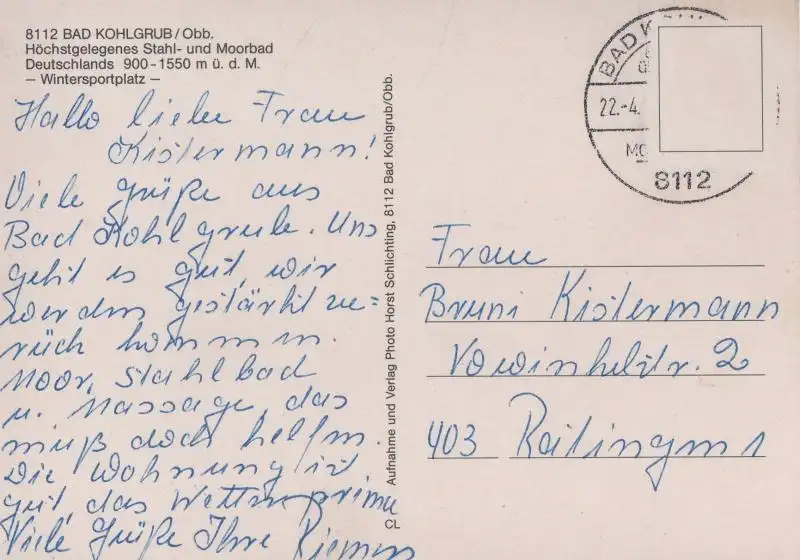 8112 BAD KOHLGRUB/Obb.
Höchstgelegenes Stahl- und Moorbad
Deutschlands 900-1550 m ü. d. M.
– Wintersportplatz –
Hallo liebe Frau
Kistermann!
Viele Grüße aus
Bad Kohlgrub. Uns
geht es gut, wir
werden gestärkt zu=
rück kommen.
Moor, Stahlbad
u. Massage, das
muß doch helfen.
Die Wohnung ist
gut, das Wetter prima
Viele Grüße Ihre
Aufnahme und Verlag Photo Horst Schlichting, 8112 Bad Kohlgrub/Obb.
CL
BAD
22.-4.
8112
Frau
Bruni Kistermann
2
403 Ratingen 1